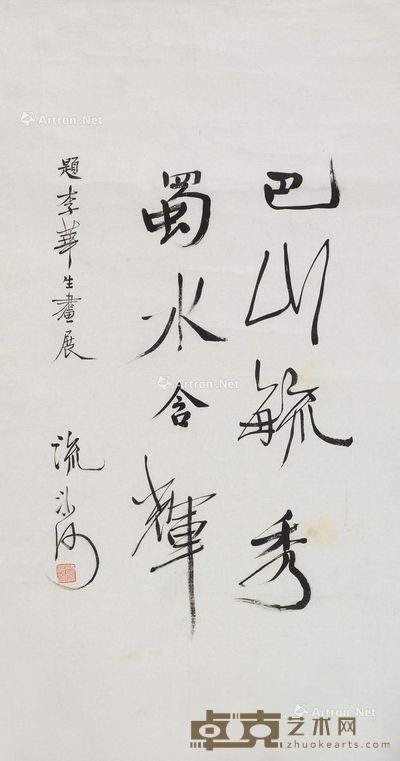 巴山毓秀
蜀水含輝
題李華生畫展
流沙河
Artron.Net
Artron.Net
Artron.Net
卓克艺术网
zhuokearts.com